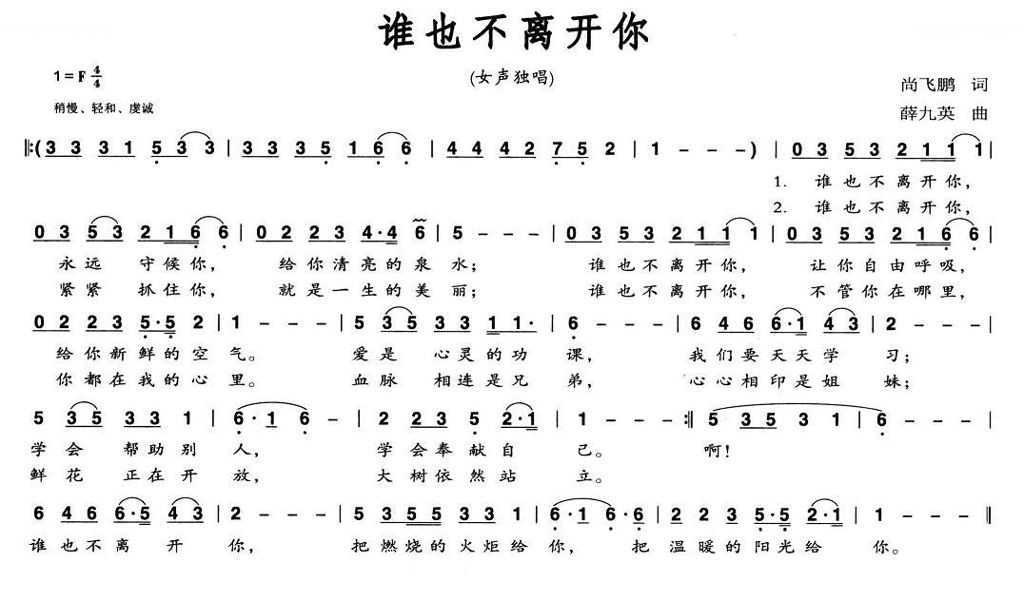 谁也不离开你
(女声独唱)
1=F 4/4
尚飞鹏 词
稍慢、轻和、虔诚
薛九英 曲
‖:(3 3 3 1 5 3 3 | 3 3 3 5 1 6 6 | 4 4 4 2 7 5 2 | 1 - - -) | 0 3 5 3 2 1 1 1 |
1. 谁也不离开你,
2. 谁也不离开你,
0 3 5 3 2 1 6 6 | 0 2 2 3 4·4 6 | 5 - - - | 0 3 5 3 2 1 1 1 | 0 3 5 3 2 1 6 6 |
永远 守候你, 给你清亮的泉水; 谁也不离开你, 让你自由呼吸,
紧紧 抓住你, 就是一生的美丽; 谁也不离开你, 不管你在哪里,
0 2 2 3 5·5 2 | 1 - - - | 5 3 5 3 3 1 1 1· | 6 - - - | 6 4 6 6·1 4 3 | 2 - - - |
给你新鲜的空气。 爱是 心灵的功课, 我们要天天学习;
你都在我的心里。 血脉 相连是兄弟, 心心相印是姐妹;
5 3 5 3 3 1 | 6·1 6 - | 2 2 3 5 2·1 | 1 - - - :‖ 5 3 5 3 1 | 6 - - - |
学会 帮助别人, 学会奉献自己。 啊!
鲜花 正在开放, 大树依然站立。
6 4 6 6·5 4 3 | 2 - - - | 5 3 5 5 3 3 1 | 6·1 6·6 | 2 2 3 5·5 2·1 | 1 - - - ‖
谁也不离开你, 把燃烧的火炬给你, 把温暖的阳光给你。